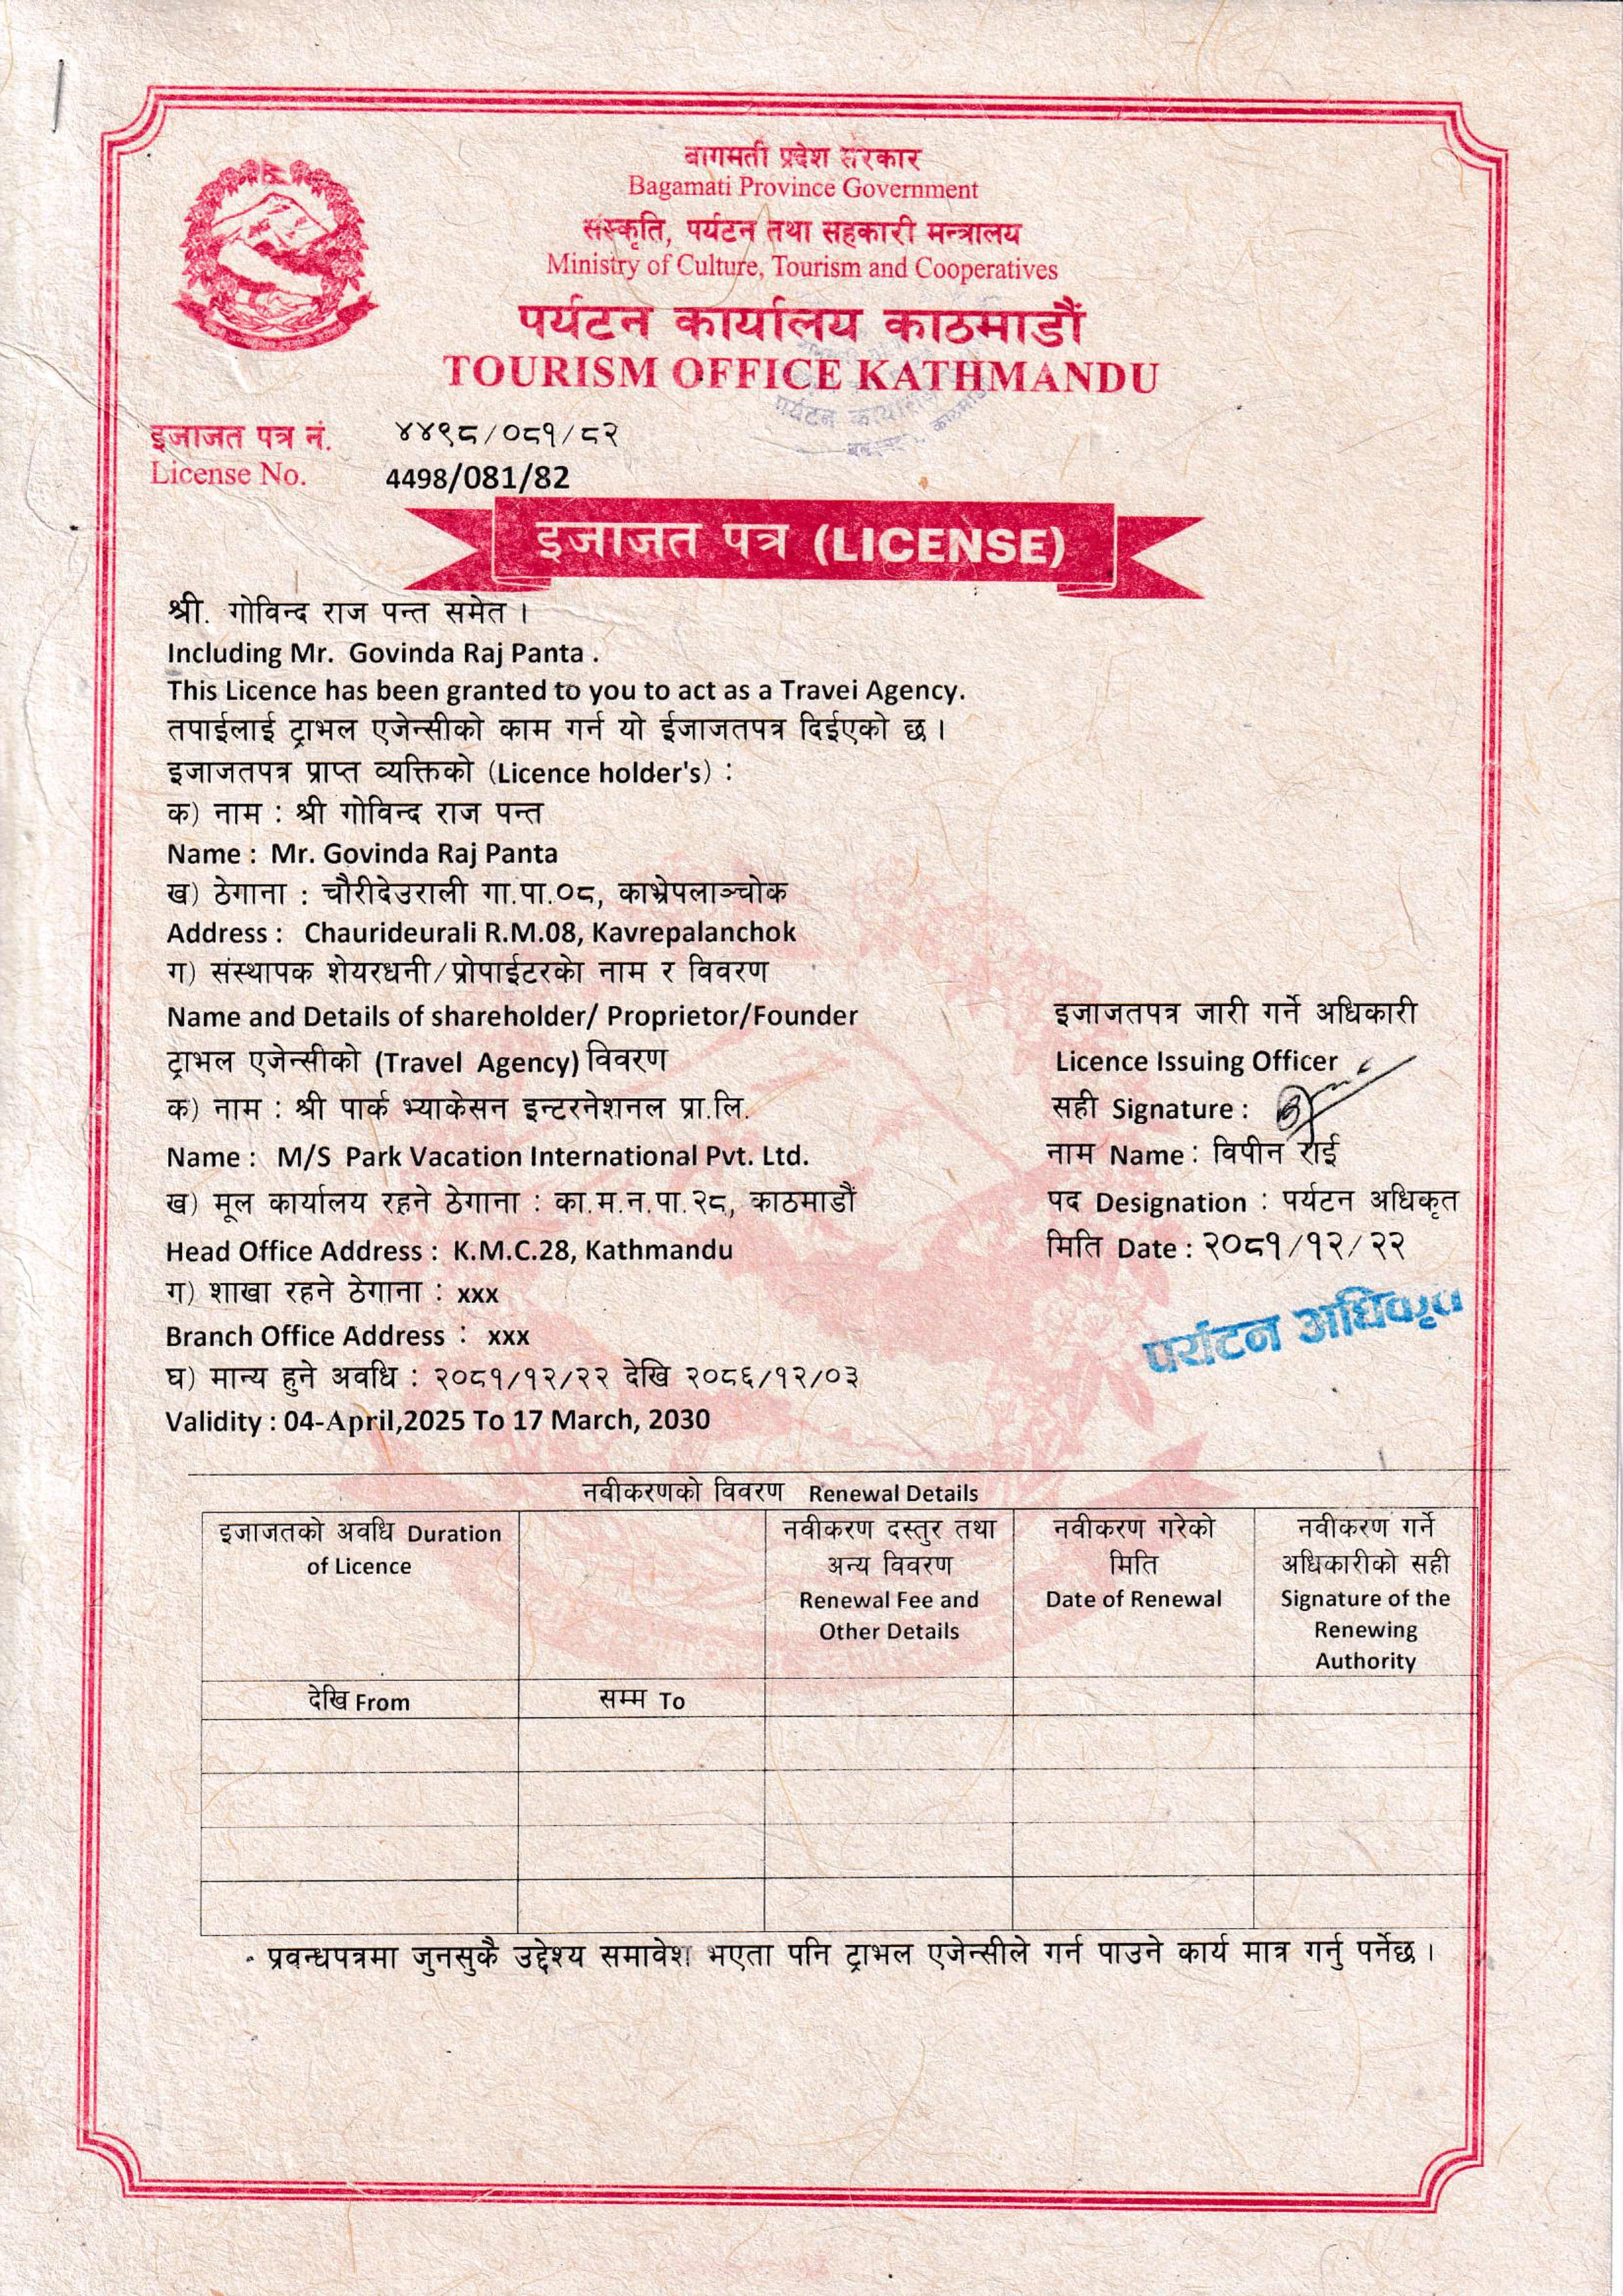 बागमती प्रदेश सरकार
Bagamati Province Government
संस्कृति, पर्यटन तथा सहकारी मन्त्रालय
Ministry of Culture, Tourism and Cooperatives
पर्यटन कार्यालय काठमाडौं
TOURISM OFFICE KATHMANDU
पर्यटन कार्यालय
इजाजत पत्र नं. ४४९८/०८१/८२
License No. 4498/081/82
इजाजत पत्र (LICENSE)
श्री. गोविन्द राज पन्त समेत ।
Including Mr. Govinda Raj Panta .
This Licence has been granted to you to act as a Travei Agency.
तपाईलाई ट्राभल एजेन्सीको काम गर्न यो ईजाजतपत्र दिईएको छ ।
इजाजतपत्र प्राप्त व्यक्तिको (Licence holder's) :
क) नाम : श्री गोविन्द राज पन्त
Name : Mr. Govinda Raj Panta
ख) ठेगाना : चौरीदेउराली गा.पा.०८, काभ्रेपलाञ्चोक
Address : Chaurideurali R.M.08, Kavrepalanchok
ग) संस्थापक शेयरधनी/प्रोपाईटरको नाम र विवरण
Name and Details of shareholder/ Proprietor/Founder
ट्राभल एजेन्सीको (Travel Agency) विवरण
क) नाम : श्री पार्क भ्याकेसन इन्टरनेशनल प्रा.लि.
Name : M/S Park Vacation International Pvt. Ltd.
ख) मूल कार्यालय रहने ठेगाना : का.म.न.पा.२८, काठमाडौं
Head Office Address : K.M.C.28, Kathmandu
ग) शाखा रहने ठेगाना : xxx
Branch Office Address : xxx
घ) मान्य हुने अवधि : २०८१/१२/२२ देखि २०८६/१२/०३
Validity : 04-April,2025 To 17 March, 2030
इजाजतपत्र जारी गर्ने अधिकारी
Licence Issuing Officer
सही Signature :
नाम Name : विपीन राई
पद Designation : पर्यटन अधिकृत
मिति Date : २०८१/१२/२२
पर्यटन अधिकृत
नवीकरणको विवरण Renewal Details
इजाजतको अवधि Duration
of Licence
नवीकरण दस्तुर तथा
अन्य विवरण
Renewal Fee and
Other Details
नवीकरण गरेको
मिति
Date of Renewal
नवीकरण गर्ने
अधिकारीको सही
Signature of the
Renewing
Authority
देखि From
सम्म To
प्रवन्धपत्रमा जुनसुकै उद्देश्य समावेश भएता पनि ट्राभल एजेन्सीले गर्न पाउने कार्य मात्र गर्नु पर्नेछ ।